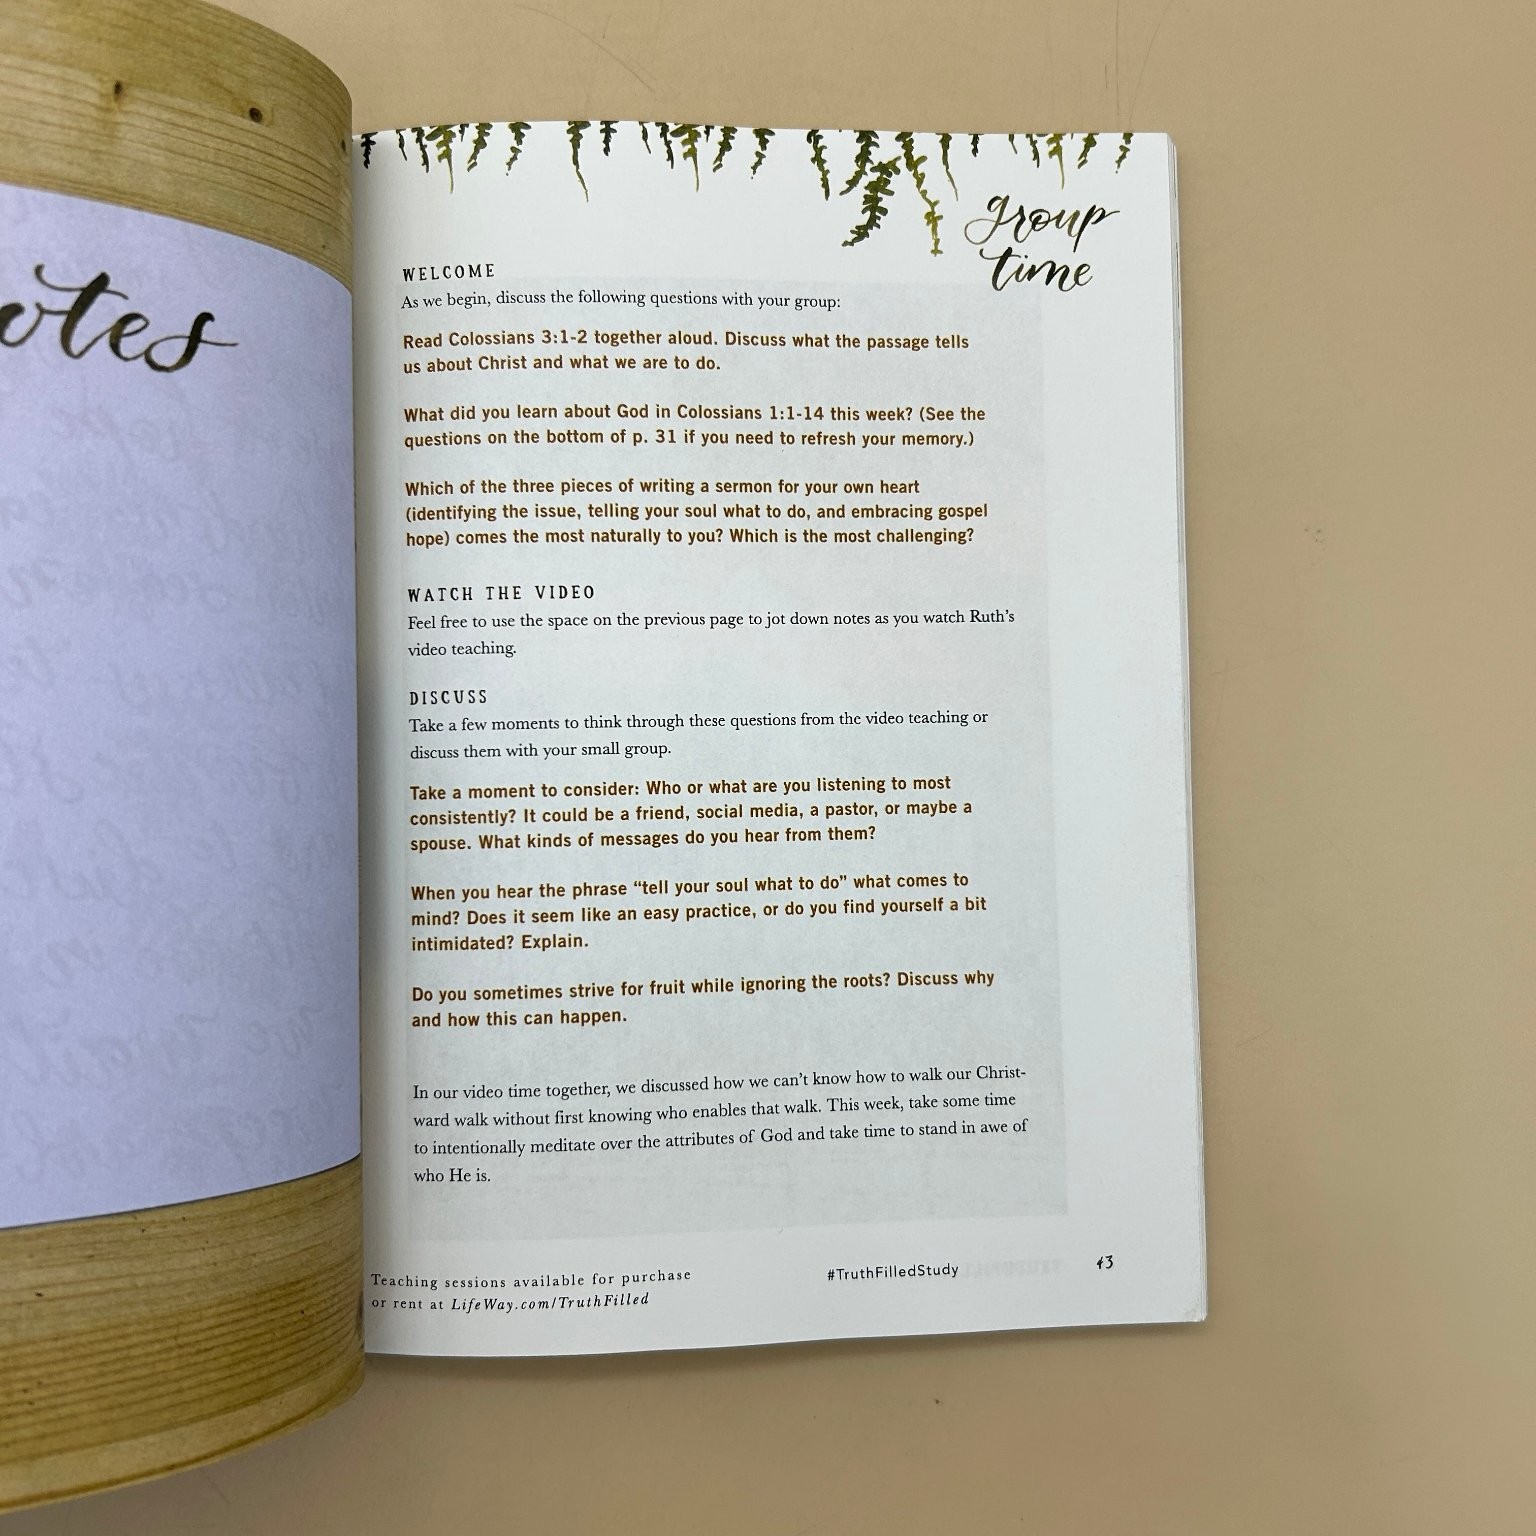 otes
group
time
WELCOME
As we begin, discuss the following questions with your group:
Read Colossians 3:1-2 together aloud. Discuss what the passage tells
us about Christ and what we are to do.
What did you learn about God in Colossians 1:1-14 this week? (See the
questions on the bottom of p. 31 if you need to refresh your memory.)
Which of the three pieces of writing a sermon for your own heart
(identifying the issue, telling your soul what to do, and embracing gospel
hope) comes the most naturally to you? Which is the most challenging?
WATCH THE VIDEO
Feel free to use the space on the previous page to jot down notes as you watch Ruth's
video teaching.
DISCUSS
Take a few moments to think through these questions from the video teaching or
discuss them with your small group.
Take a moment to consider: Who or what are you listening to most
consistently? It could be a friend, social media, a pastor, or maybe a
spouse. What kinds of messages do you hear from them?
When you hear the phrase “tell your soul what to do” what comes to
mind? Does it seem like an easy practice, or do you find yourself a bit
intimidated? Explain.
Do you sometimes strive for fruit while ignoring the roots? Discuss why
and how this can happen.
In our video time together, we discussed how we can’t know how to walk our Christ-
ward walk without first knowing who enables that walk. This week, take some time
to intentionally meditate over the attributes of God and take time to stand in awe of
who He is.
Teaching sessions available for purchase
or rent at LifeWay.com/TruthFilled
#TruthFilledStudy
43